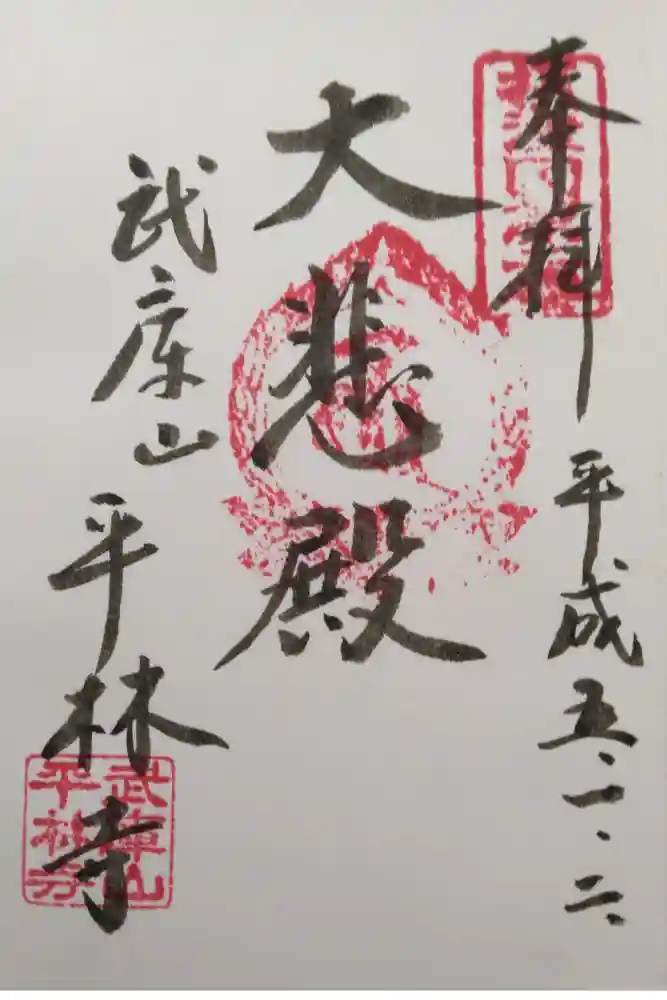 奉拝
平成五、一、六
大悲殿
武庫山
平林寺
武庫山
平林寺